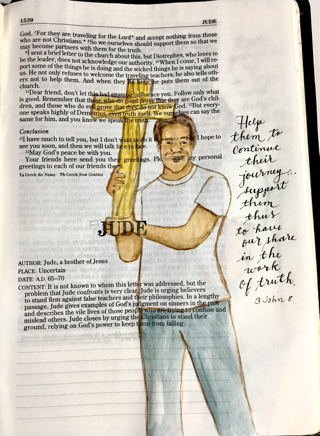 1539
JUDE
God. ⁷For they are traveling for the Lord* and accept nothing from those
who are not Christians.* ⁸So we ourselves should support them so that we
may become partners with them for the truth.
⁹I sent a brief letter to the church about this, but Diotrephes, who loves to
be the leader, does not acknowledge our authority. ¹⁰When I come, I will re-
port some of the things he is doing and the wicked things he is saying about
us. He not only refuses to welcome the traveling teachers, he also tells oth-
ers not to help them. And when they do help he puts them out of the
church.
¹¹Dear friend, don't let this bad example influence you. Follow only what
is good. Remember that those who do good prove that they are God's chil-
dren, and those who do evil prove that they do not know God.* ¹²But every-
one speaks highly of Demetrius, even truth itself. We ourselves can say the
same for him, and you know we speak the truth.
Conclusion
¹³I have much to tell you, but I don't want to do it I hope to
see you soon, and then we will talk face to face.
¹⁵May God's peace be with you.
Your friends here send you their greetings. my personal
greetings to each of our friends there.
AUTHOR: Jude, a brother of Jesus
PLACE: Uncertain
DATE: A.D. 65–70
JUDE
CONTENT: It is not known to whom this letter was addressed, but the
problem that Jude confronts is very clear. Jude is urging believers
to stand firm against false teachers and their philosophies. In a lengthy
passage, Jude gives examples of God's judgment on sinners in the past
and describes the vile lives of those people who are trying to confuse and
mislead others. Jude closes by urging the Christians to stand their
ground, relying on God's power to keep them from falling.
Help
them to
continue
their
journey...
support
them
thus
to have
our share
in the
work
of truth.
3 John 8